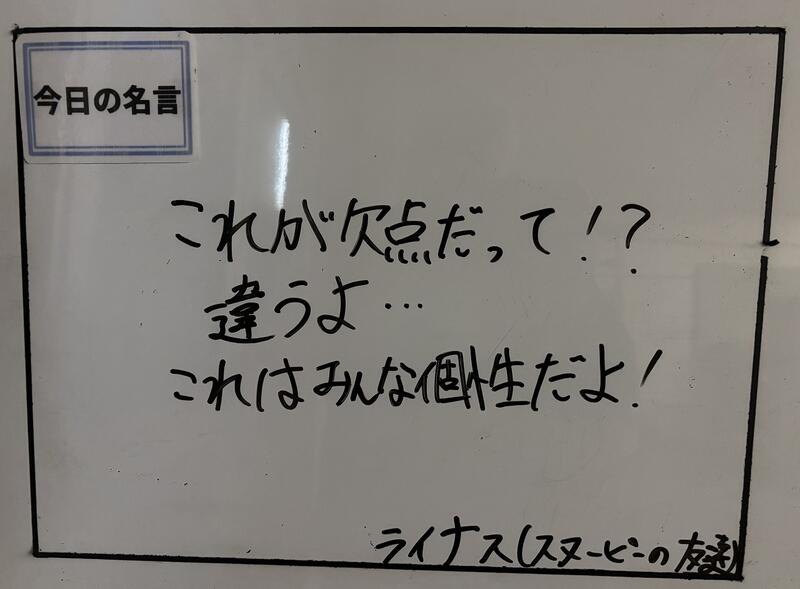 今日の名言
これが欠点だって!?
違うよ…
これはみんな個性だよ!
ライナス(スヌーピーの友達)